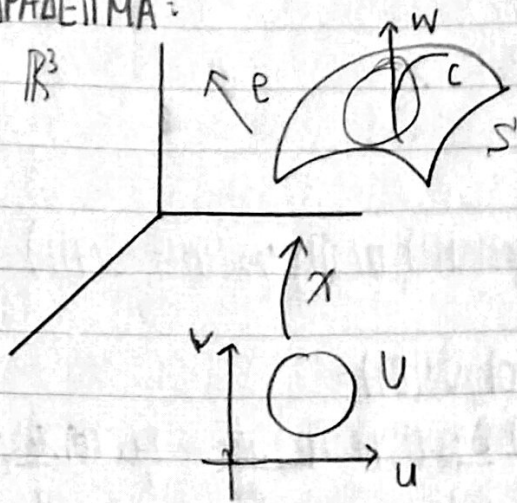 ΠΑΡΑΔΕΙΓΜΑ:
ℝ³
e
W
C
S
X
v
U
u